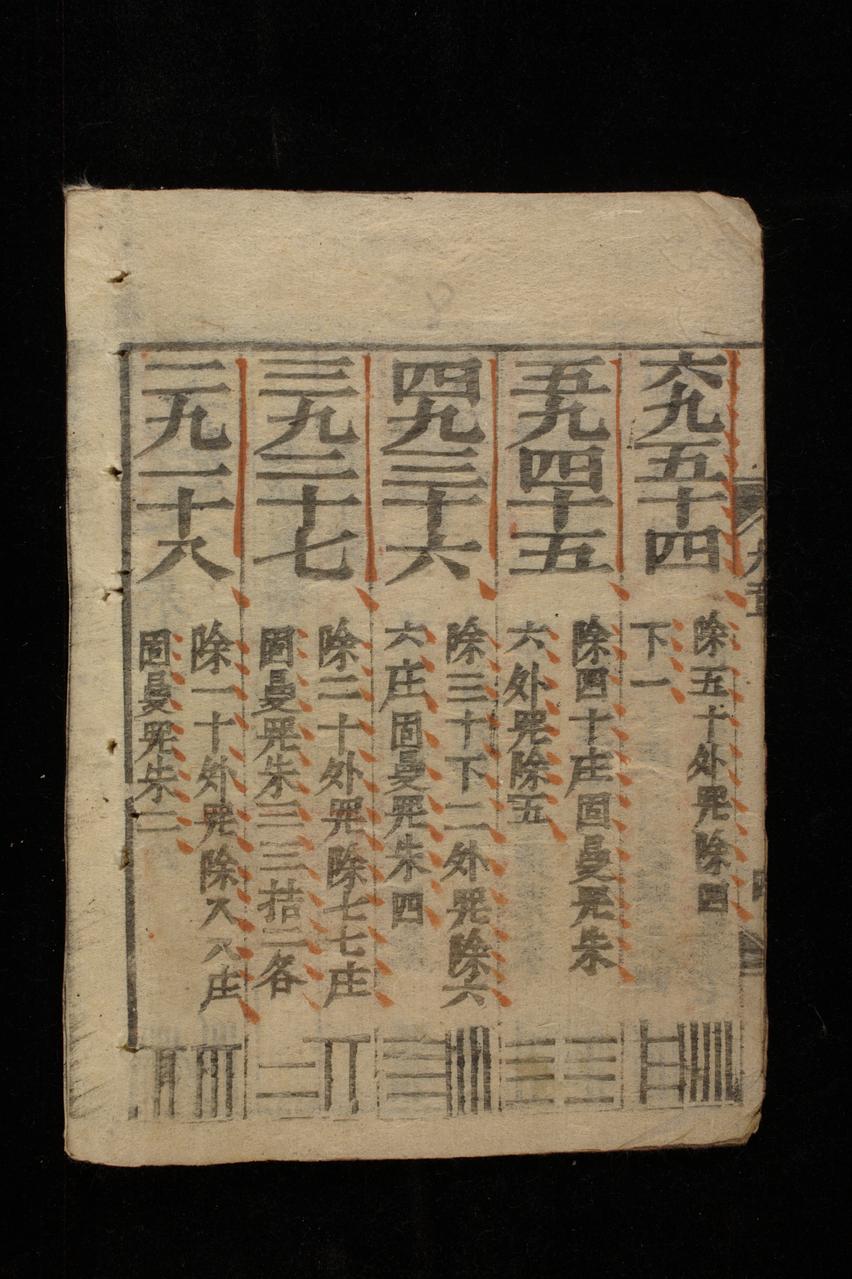 九章
六九五十四
除五十外除四
下一
五九四十五
除四十庄固曼朱
六外除五
四九三十六
除三十下二外除六
六庄固曼朱四
三九二十七
除二十外除七七庄
固曼朱三三拮二各
二九一十八
除一十外除八八庄
固曼朱二